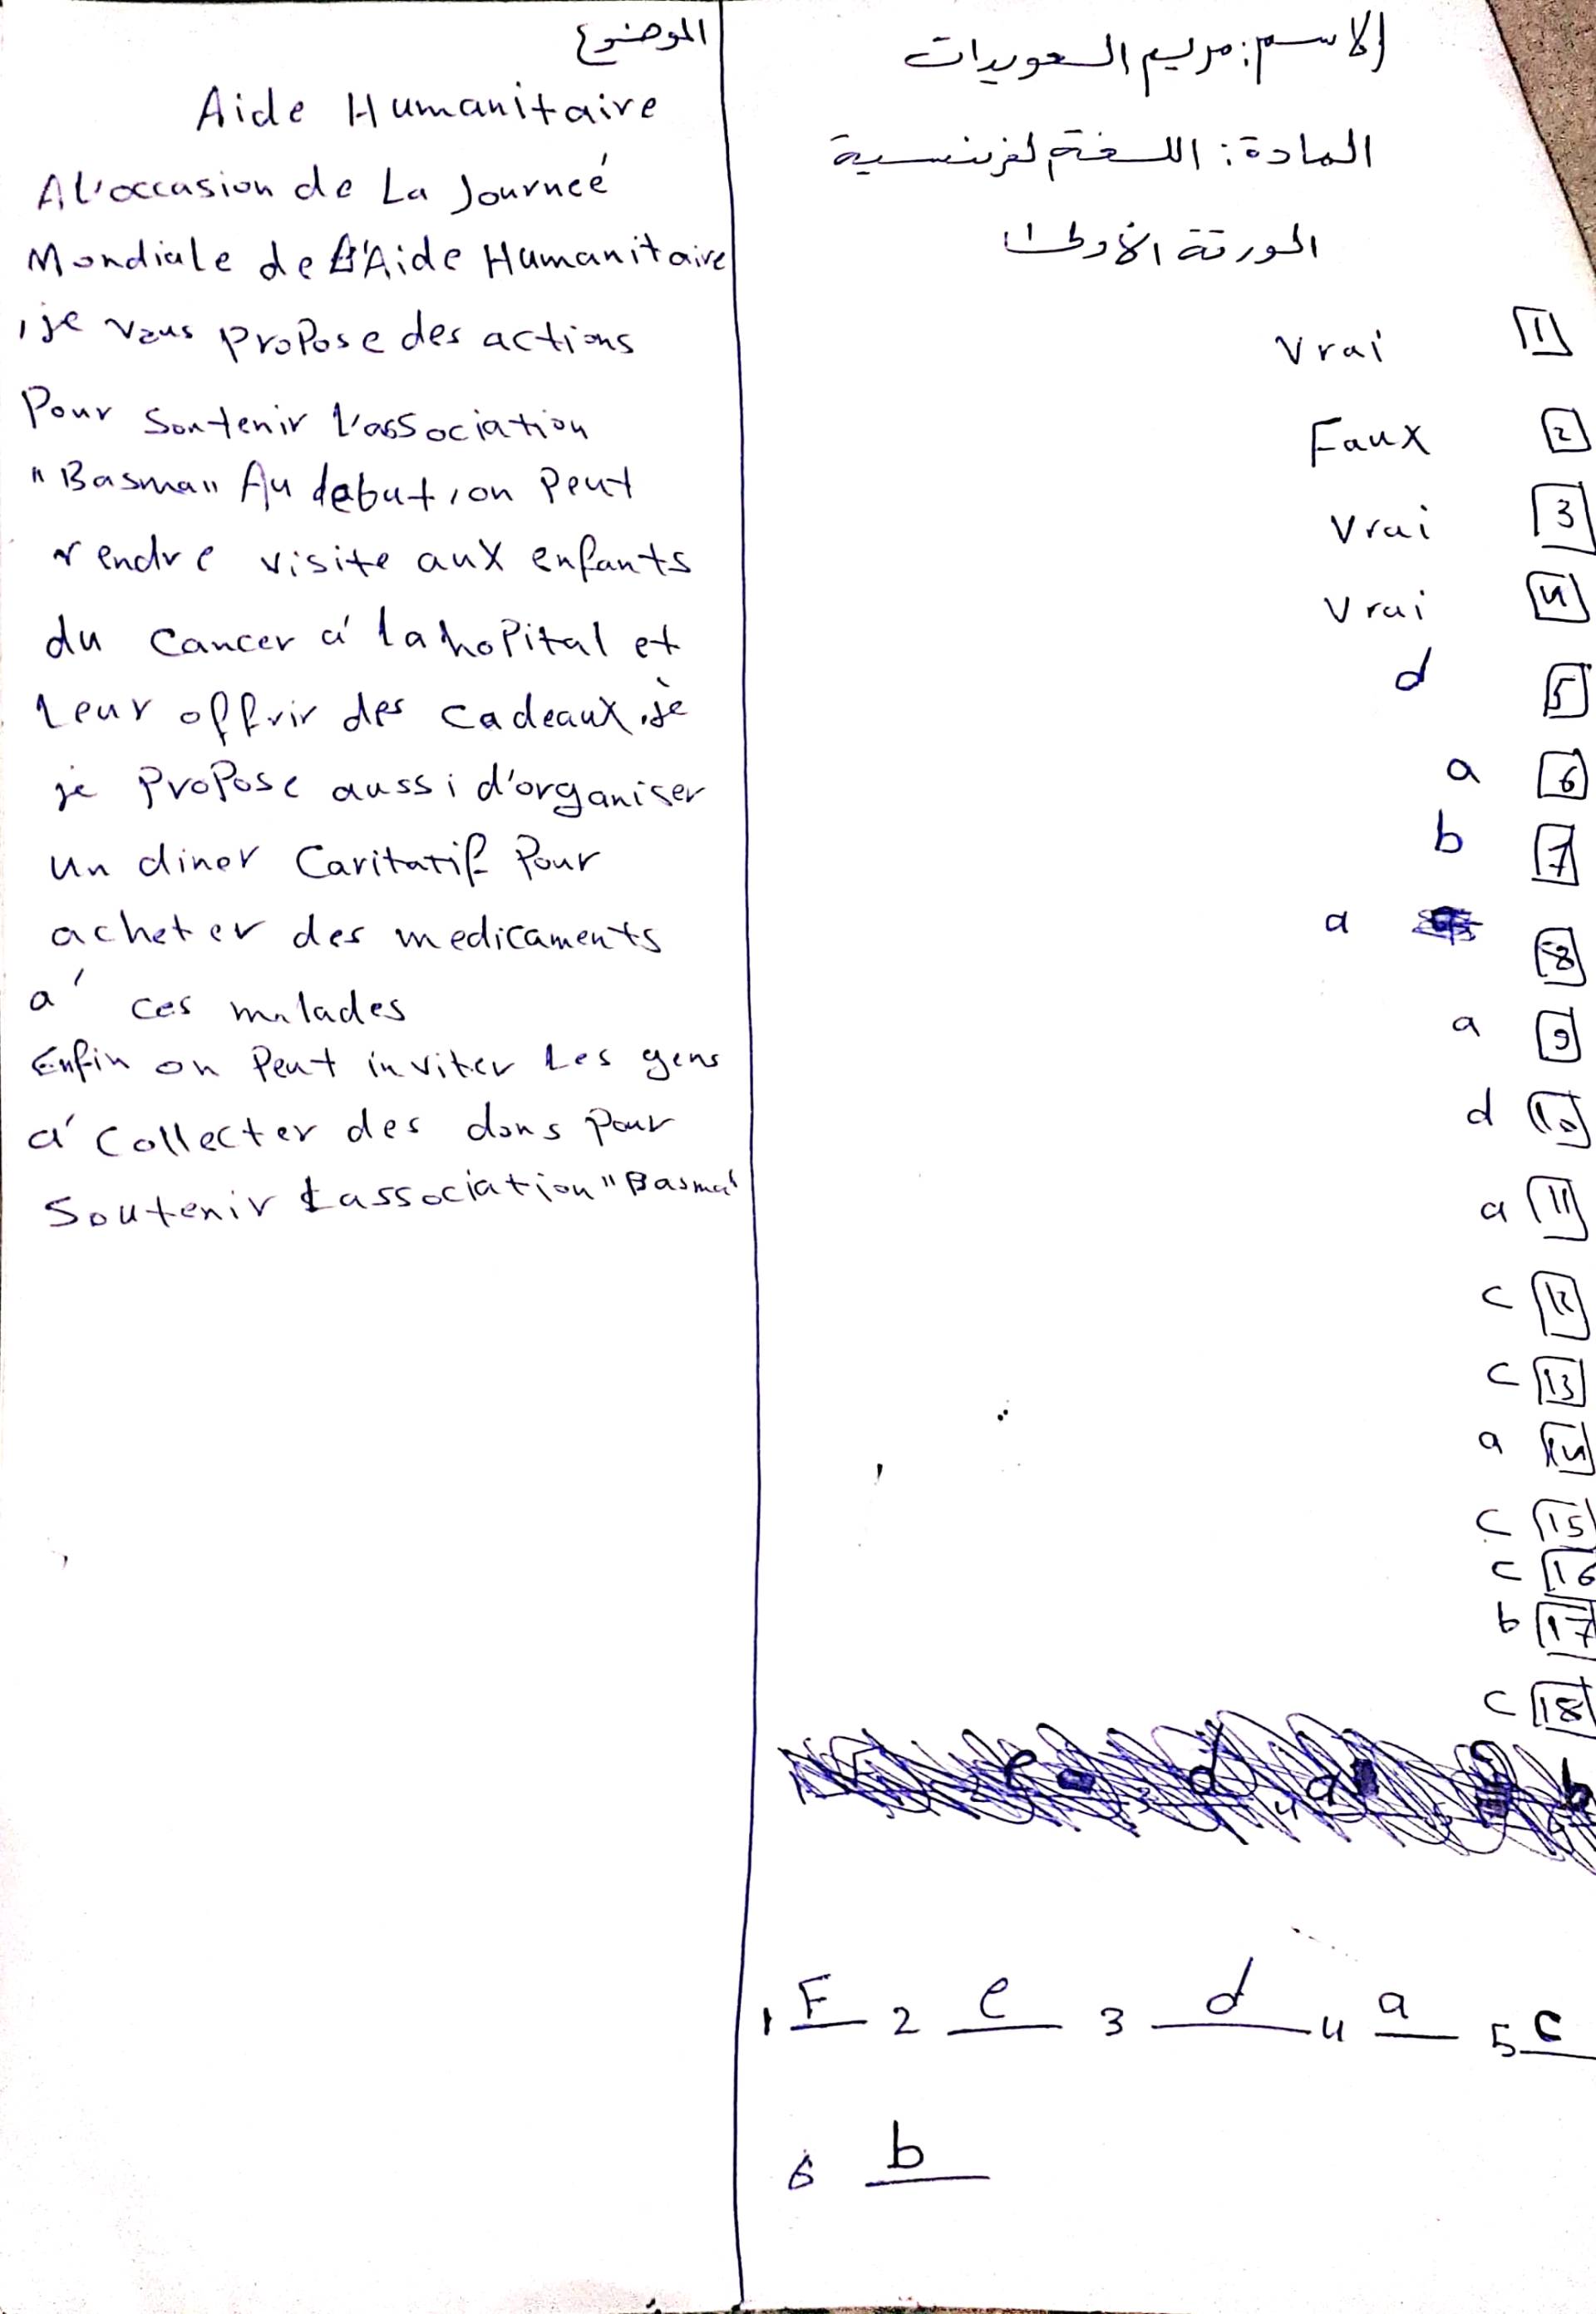 الاسم: مريم السعويدات
المادة: اللغة الفرنسية
الورقة الأولى
1 Vrai
2 Faux
3 Vrai
4 Vrai
5 d
6 a
7 b
8 a
9 a
10 d
11 a
12 c
13 c
14 a
15 c
16 c
17 b
18 c
1 F 2 e 3 d 4 a 5 c
6 b
الموضوع
Aide Humanitaire
A l'occasion de La Journeé
Mondiale de l'Aide Humanitaire
, je vous propose des actions
Pour Soutenir l'association
"Basma" Au debut, on Peut
rendre visite aux enfants
du cancer á la hoPital et
Leur offrir des cadeaux. je
je ProPose aussi d'organiser
un diner Caritatif Pour
acheter des medicaments
á ces malades
Enfin on Peut inviter Les gens
á Collecter des dons pour
Soutenir Lassociation "Basma"